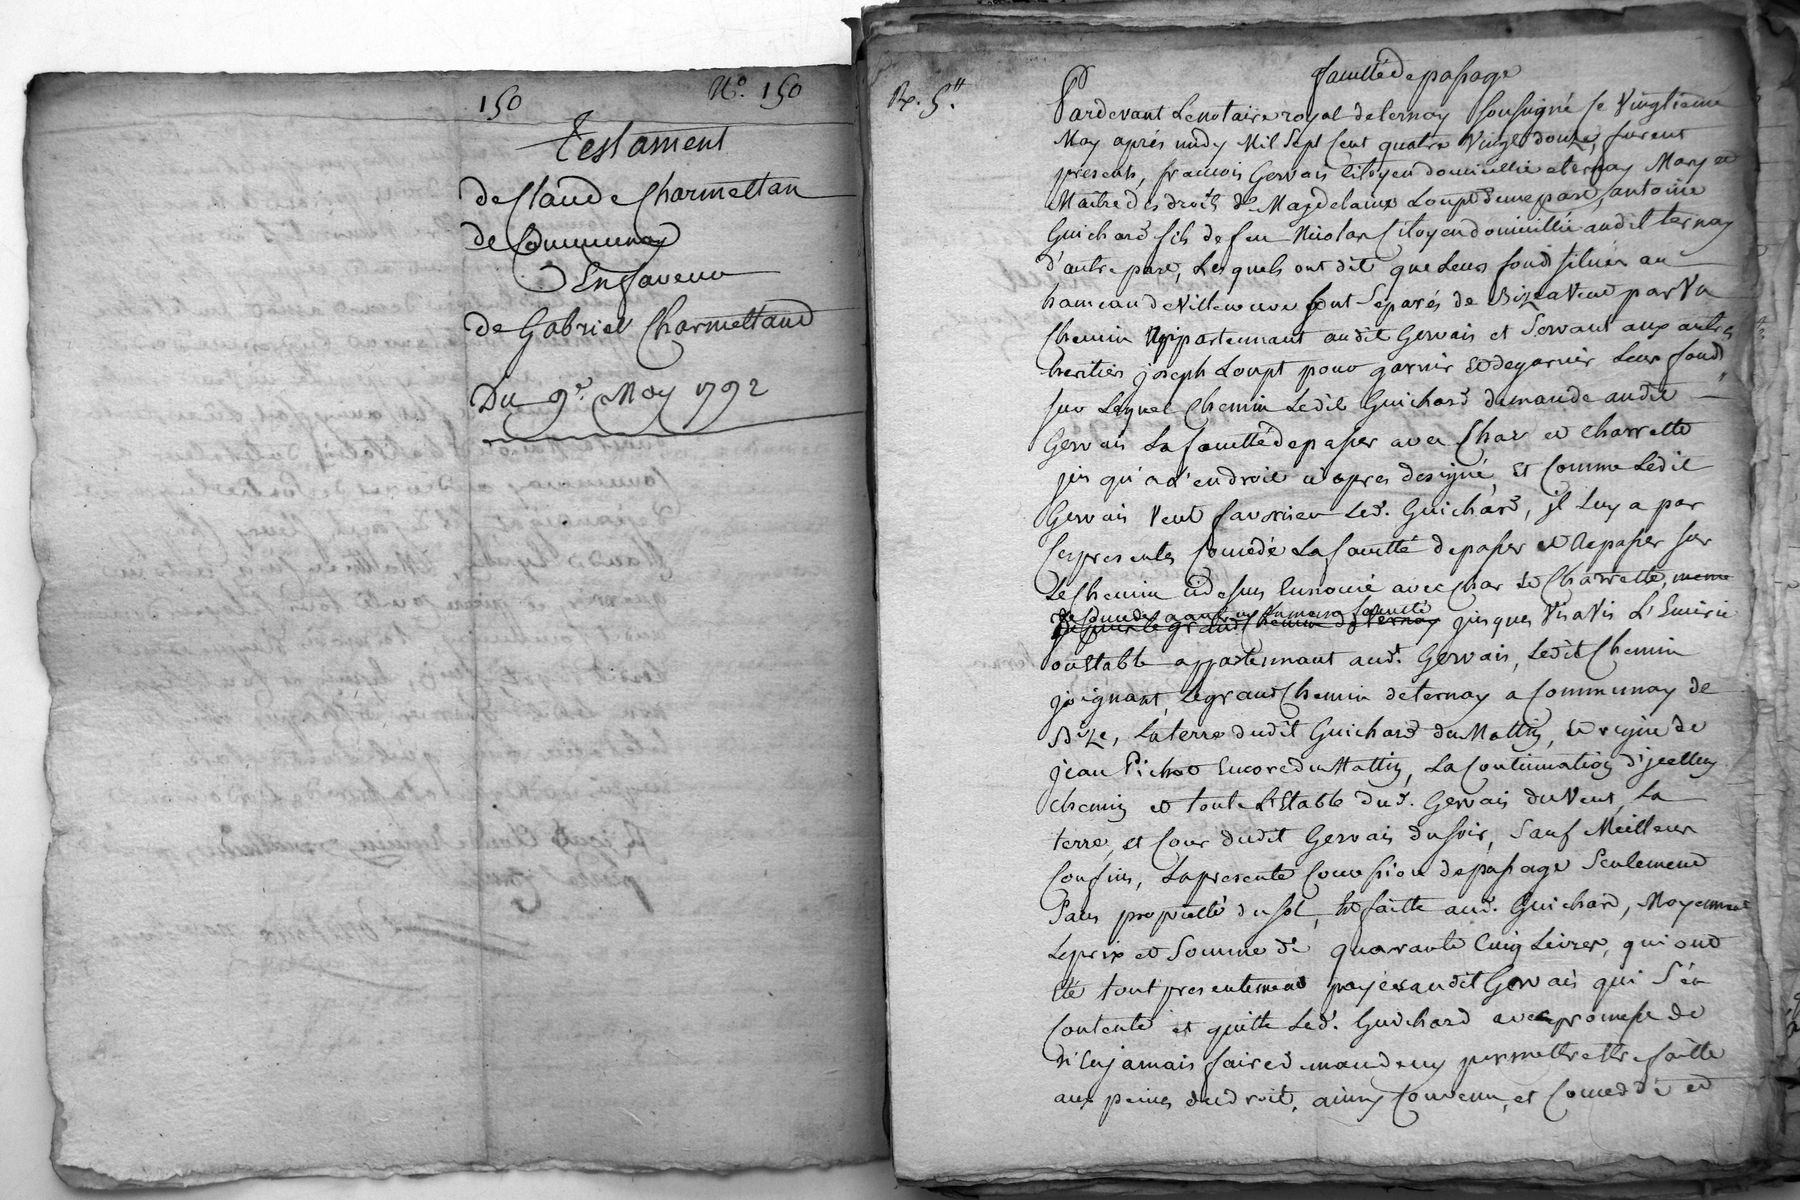 150 N°. 150
Testament
de Claude Charmettan
de Communay
En faveur
de Gabriel Charmettand
Du 9e. May 1792
R. 5tt.
faculté de passage
Pardevant Le notaire royal de ternay soussigné Ce Vingtieme
May aprés midy Mil Sept Cent quatre Vingt douze, furent
presents, francois Gervais Citoyen domicillié a ternay Mary et
Maitre des droits de Magdelaine Loupt dune part, antoine
Guichard fils de feu Nicolas Citoyen domicillié audit ternay
d'autre part, Lesquels ont dit que Leurs fond situés au
hameau de Villeneuve sont Separés de Bize a Vent par Un
Chemin Appartennant audit Gervais et Servant aux autres
heritiers joseph Loupt pour garnir et degarnir Leur fond
sur Lequel Chemin Ledit Guichard demande audit
Gervais La faculté de passer avec Char et charrette
jus qu'a L'endroit ci apres designé, et Comme Ledit
Gervais Veut favoriser Led. Guichard, jl Luy a par
Ces presentes Concédé La faculté de passer et Repasser sur
Le Chemin cidessus Enoncé avec Char et Charrette, meme
de Conceder a autruy La meme faculté
depuis le grand Chemin de Ternay jusques Vis a Vis L'Ecurie
ou Stable appartennant aud. Gervais, Ledit Chemin
joignant, Le grand Chemin de ternay a Communay de
Bize, La terre dudit Guichard du Mattin, et vigne de
jean Pichot Encore du Mattin, La Continuation d'jcelluy
chemin et toute L'Stable dud. Gervais du Vent, La
terre, et Cour dudit Gervais du soir, Sauf Meilleur
Confins, La presente Concession de passage Seulement
Sans proprieté du sol, Est faitte aud. Guichard, Moyennant
Le prix et Somme de quarante Cinq Livres, qui ont
Eté tout presentement payés audit Gervais qui S'en
Contente et quitte Led. Guichard avec promesse de
N'en jamais faire demande ny permettre Etre faitte
aux peines de droit, ainsy Convenu, et Conceddé et